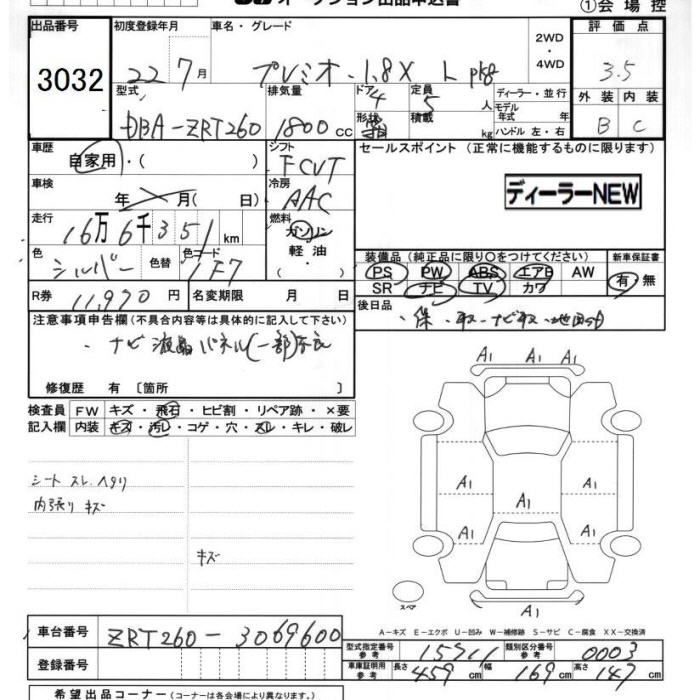 オークション出品申込書
①会場控
出品番号
3032
初度登録年月
22 7月
車名・グレード
プレミオ・1.8X L pkg
2WD
・
4WD
評価点
3.5
型式
DBA-ZRT260
排気量
1800cc
ドア
4
形状
定員
5人
積載
kg
ディーラー・並行
モデル年式 年
ハンドル 左・右
外装 内装
B C
車歴
自家用・( )
シフト
FCVT
車検
年 月( 日)
冷房
AAC
走行
16万6千351km
燃料
ガソリン
軽油
( )
色
シルバー
色替
色コード
1F7
R券
11,990円
名変期限 月 日
セールスポイント (正常に機能するものに限ります)
ディーラーNEW
装備品(純正品に限り○をつけてください)
PS PW ABS エアB AW
SR ナビ TV カワ
新車保証書
有・無
後日品
・保・取・ナビ取・地図
注意事項申告欄(不具合内容等は具体的に記入して下さい)
・ナビ液晶パネル(一部)
修復歴 有〔箇所
検査員記入欄
FW キズ・飛石・ヒビ割・リペア跡・×要
内装 キズ・汚レ・コゲ・穴・スレ・キレ・破レ
シート スレ、ヘタリ
内張り キズ
キズ
A1 A1 A1
A1 A1
A1
A1 A1
A1
スペア
A-キズ E-エクボ U-凹み W-補修跡 S-サビ C-腐食 XX-交換済
車台番号
ZRT260-3069600
登録番号
型式指定番号
参考
類別区分番号
参考
0003
車庫証明用
参考
長さ 459cm 幅 169cm 高さ 147cm
希望出品コーナー(コーナーは各会場により異なります。)